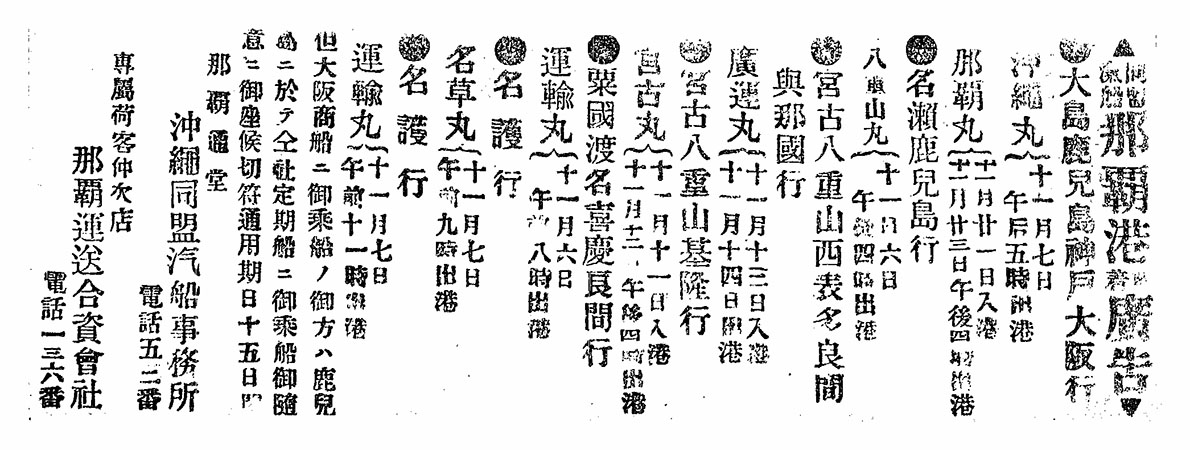 那覇港 廣告
●大島鹿兒島神戸大阪行
沖繩丸 十一月七日
午后五時出港
那覇丸 十一月廿一日入港
十一月廿三日午後四時出港
●名瀬鹿兒島行
八重山丸 十一月六日
午後四時出港
●宮古八重山西表多良間
與那國行
廣運丸 十一月十三日入港
十一月十四日出港
●宮古八重山基隆行
宮古丸 十一月十一日入港
十一月十二日午後四時出港
●粟國渡名喜慶良間行
運輸丸 十一月六日
午前八時出港
●名護行
名草丸 十一月七日
午前九時出港
●名護行
運輸丸 十一月七日
午前十一時出港
但大阪商船ニ御乘船ノ御方ハ鹿兒
島ニ於テ仝社定期船ニ御乘船御隨
意ニ御座候切符通用期日十五日間
那覇通堂
沖繩同盟汽船事務所
電話五二番
専屬荷客仲次店
那覇運送合資會社
電話一三六番